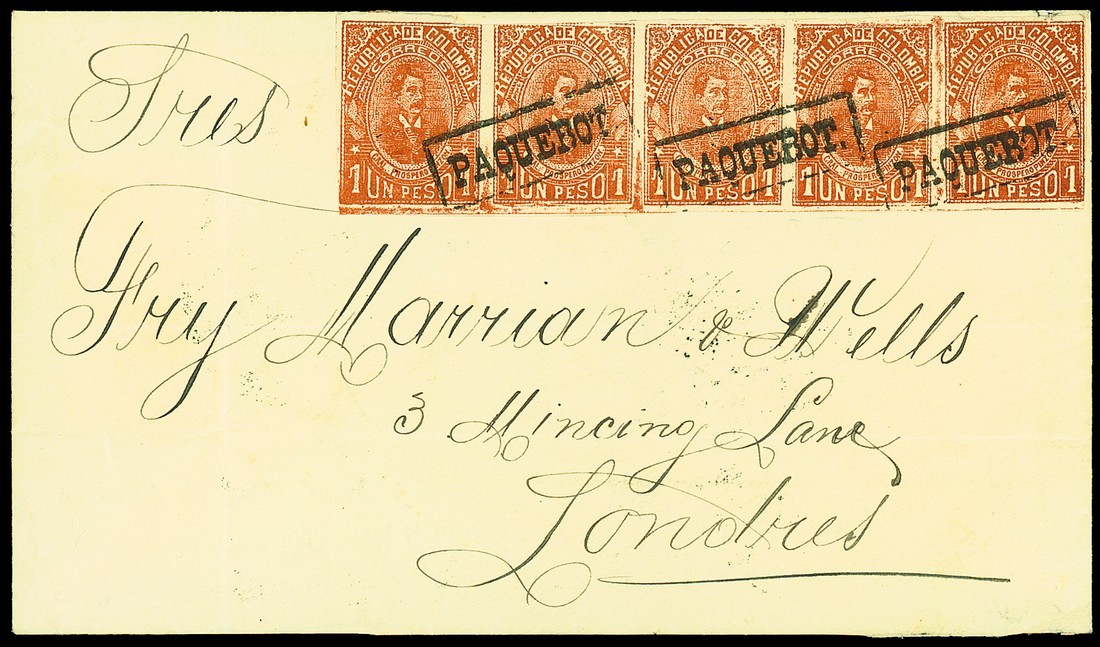 Tres
REPUBLICA DE COLOMBIA REPUBLICA DE COLOMBIA REPUBLICA DE COLOMBIA REPUBLICA DE COLOMBIA REPUBLICA DE COLOMBIA
CORREOS CORREOS CORREOS CORREOS CORREOS
PAQUEBOT PAQUEBOT. PAQUEBOT
GRAL. PROSPERO PROSPERO PROSPERO PROSPERO PROSPERO
1 UN PESO 1 1 UN PESO 1 1 UN PESO 1 1 UN PESO 1 1 UN PESO 1
Fry Marrian & Wells
3 Mincing Lane
Londres